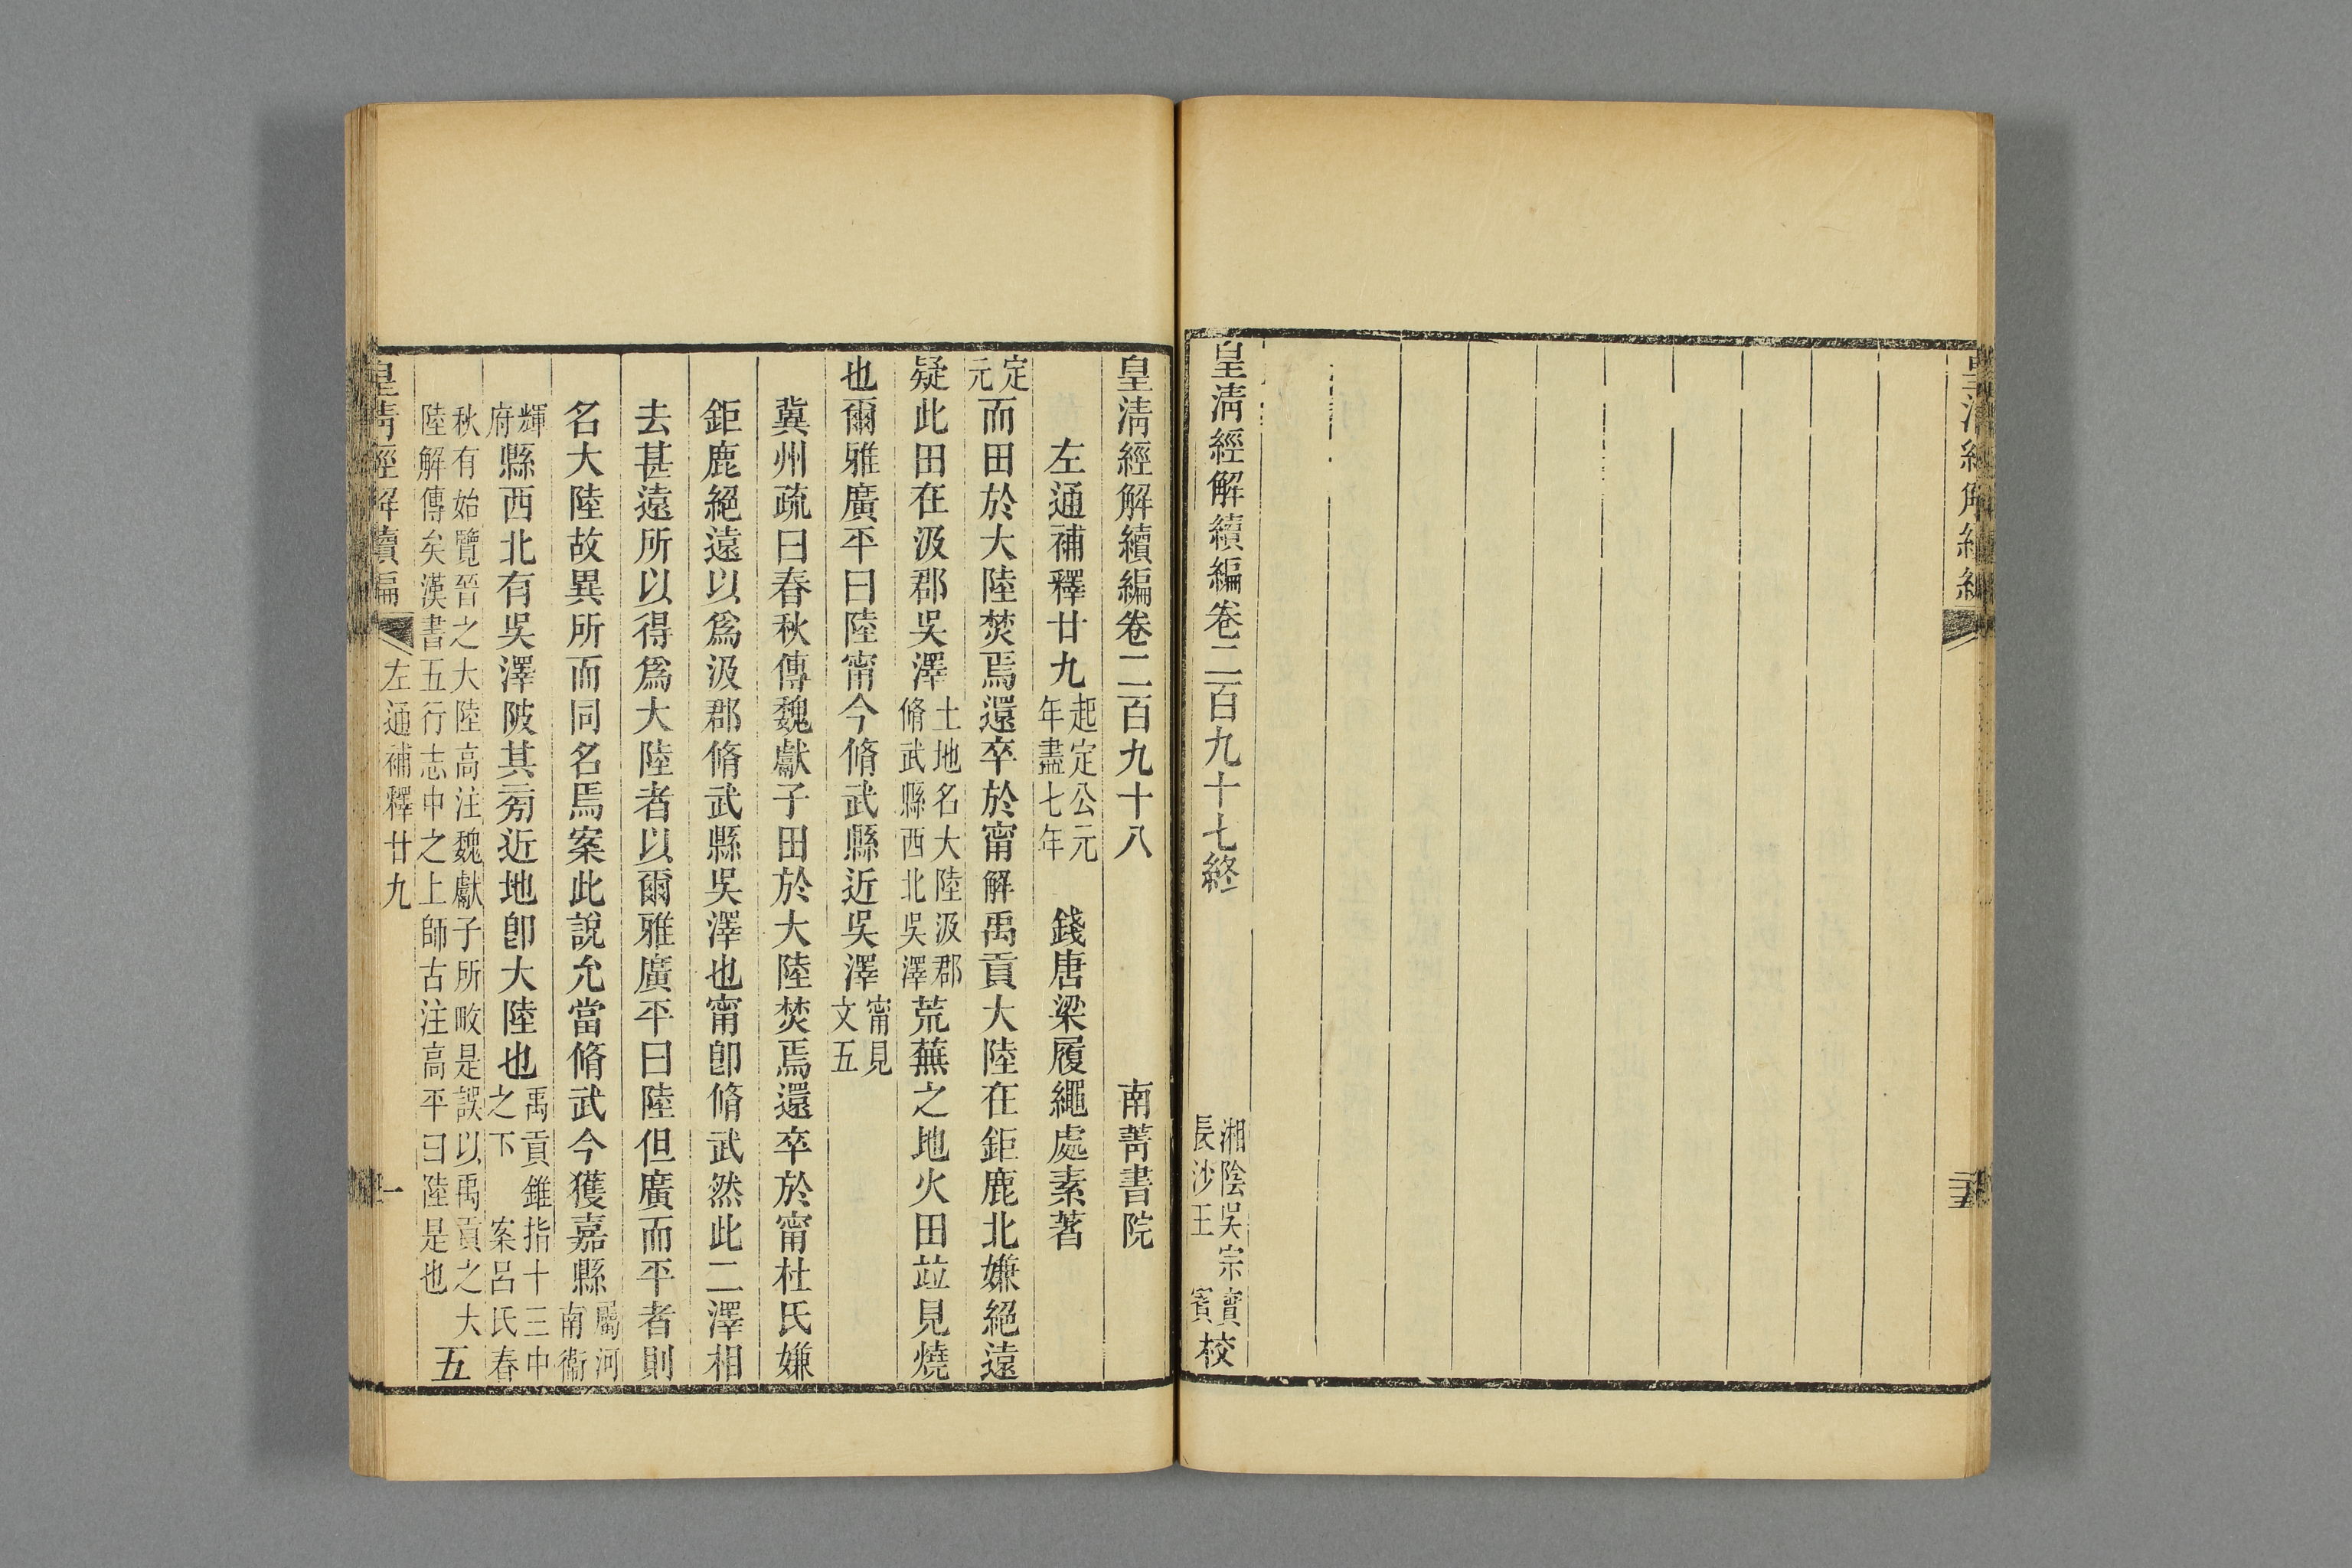 皇清經解續編卷二百九十七終
湘陰吳宗實
長沙王 賓
校
皇清經解續編卷二百九十八
南菁書院
左通補釋廿九
起定公元
年盡七年
錢唐梁履繩處素著
定
元
而田於大陸焚焉還卒於甯解禹貢大陸在鉅鹿北嫌絕遠
疑此田在汲郡吳澤
土地名大陸汲郡
脩武縣西北吳澤
荒蕪之地火田竝見燒
也爾雅廣平曰陸甯今脩武縣近吳澤
甯見
文五
冀州疏曰春秋傳魏獻子田於大陸焚焉還卒於甯杜氏嫌
鉅鹿絕遠以爲汲郡脩武縣吳澤也甯卽脩武然此二澤相
去甚遠所以得爲大陸者以爾雅廣平曰陸但廣而平者則
名大陸故異所而同名焉案此說允當脩武今獲嘉縣
屬河
南衞
輝
府
縣西北有吳澤陂其旁近地卽大陸也
禹貢錐指十三中
之下 案呂氏春
秋有始覽晉之大陸高注魏獻子所畋是誤以禹貢之大
陸解傳矣漢書五行志中之上師古注高平曰陸是也
五
皇清經解續編
左通補釋廿九
一